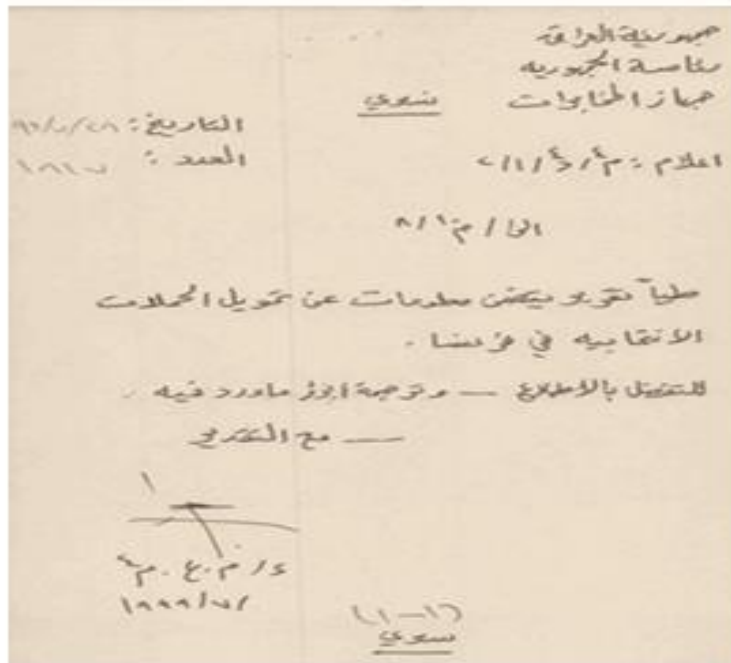 جمهورية العراق
رئاسة الجمهورية
جهاز المخابرات
سري
التاريخ:
العدد:
اعلام : م٤/د٤/١/٢
الى / م١٠/٨
طياً تقرير يتضمن معلومات عن تمويل الحملات
الانتخابية في فرنسا .
للتفضل بالاطلاع — وترجمة ابرز ماورد فيه .
— مع التقدير
١٩٩٩/٧/
(١-١)
سري